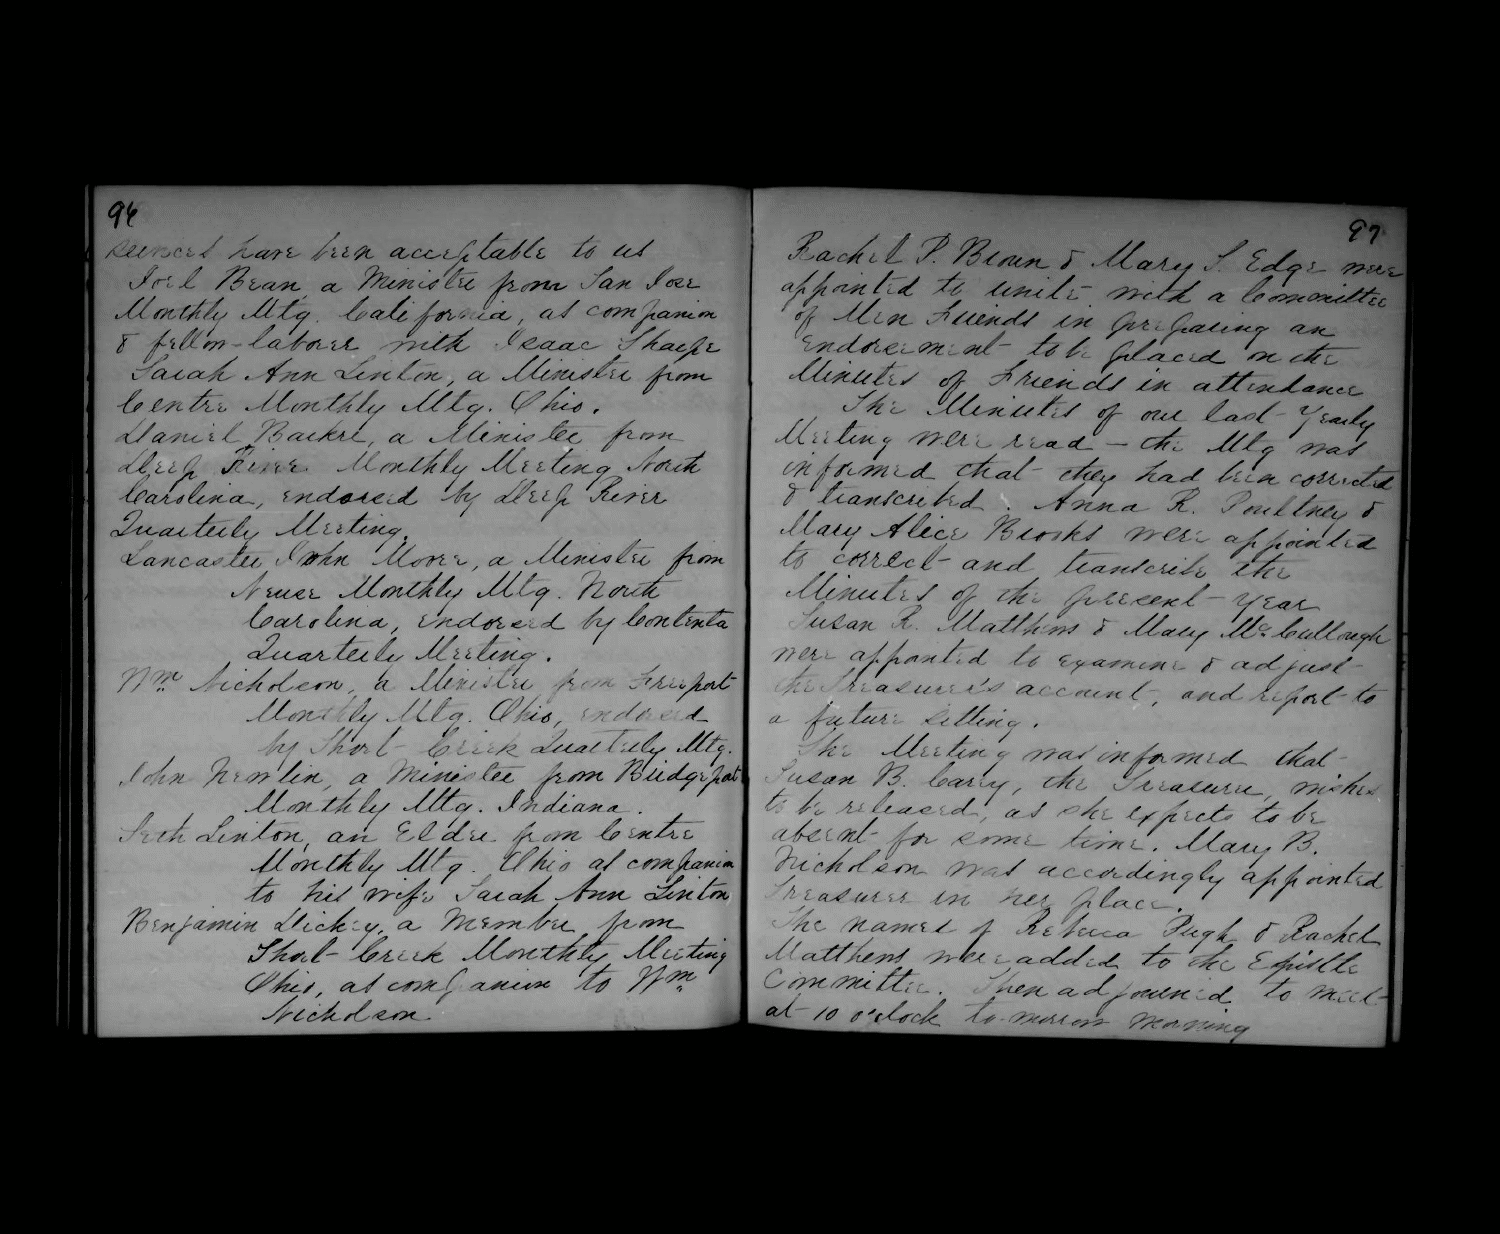 96
services have been acceptable to us
Joel Bean, a Minister from San Jose
Monthly Mtg. California, as companion
& fellow-laborer with Isaac Sharpe
Sarah Ann Linton, a Minister from
Centre Monthly Mtg. Ohio.
Daniel Barker, a Minister from
Deep River Monthly Meeting North
Carolina, endorsed by Deep River
Quarterly Meeting.
Lancaster John Moore, a Minister from
Neuse Monthly Mtg. North
Carolina, endorsed by Contentnea
Quarterly Meeting.
Wm Nicholson, a Minister from Freeport
Monthly Mtg. Ohio, endorsed
by Short-Creek Quarterly Mtg.
John Newlin, a Minister from Bridgeport
Monthly Mtg. Indiana.
Seth Linton, an Elder from Centre
Monthly Mtg. Ohio as companion
to his wife Sarah Ann Linton
Benjamin Dickey, a Member from
Short-Creek Monthly Meeting
Ohio, as companion to Wm.
Nicholson
97
Rachel P. Brown & Mary S. Edge were
appointed to unite with a Committee
of Men Friends in preparing an
Endorsement to be placed on the
Minutes of Friends in attendance
The Minutes of our last Yearly
Meeting were read — the Mtg was
informed that they had been corrected
& transcribed. Anna R. Poultney &
Mary Alice Brooks were appointed
to correct and transcribe the
Minutes of the present year
Susan R. Matthews & Mary McCullough
were appointed to examine & adjust
the Treasurer's account, and report to
a future sitting.
The Meeting was informed that
Susan B. Carey, the Treasurer, wishes
to be released, as she expects to be
absent for some time. Mary B.
Nicholson was accordingly appointed
Treasurer in her place.
The names of Rebecca Pugh & Rachel
Matthews were added to the Epistle
Committee. Then adjourned to meet
at 10 o'clock to-morrow morning